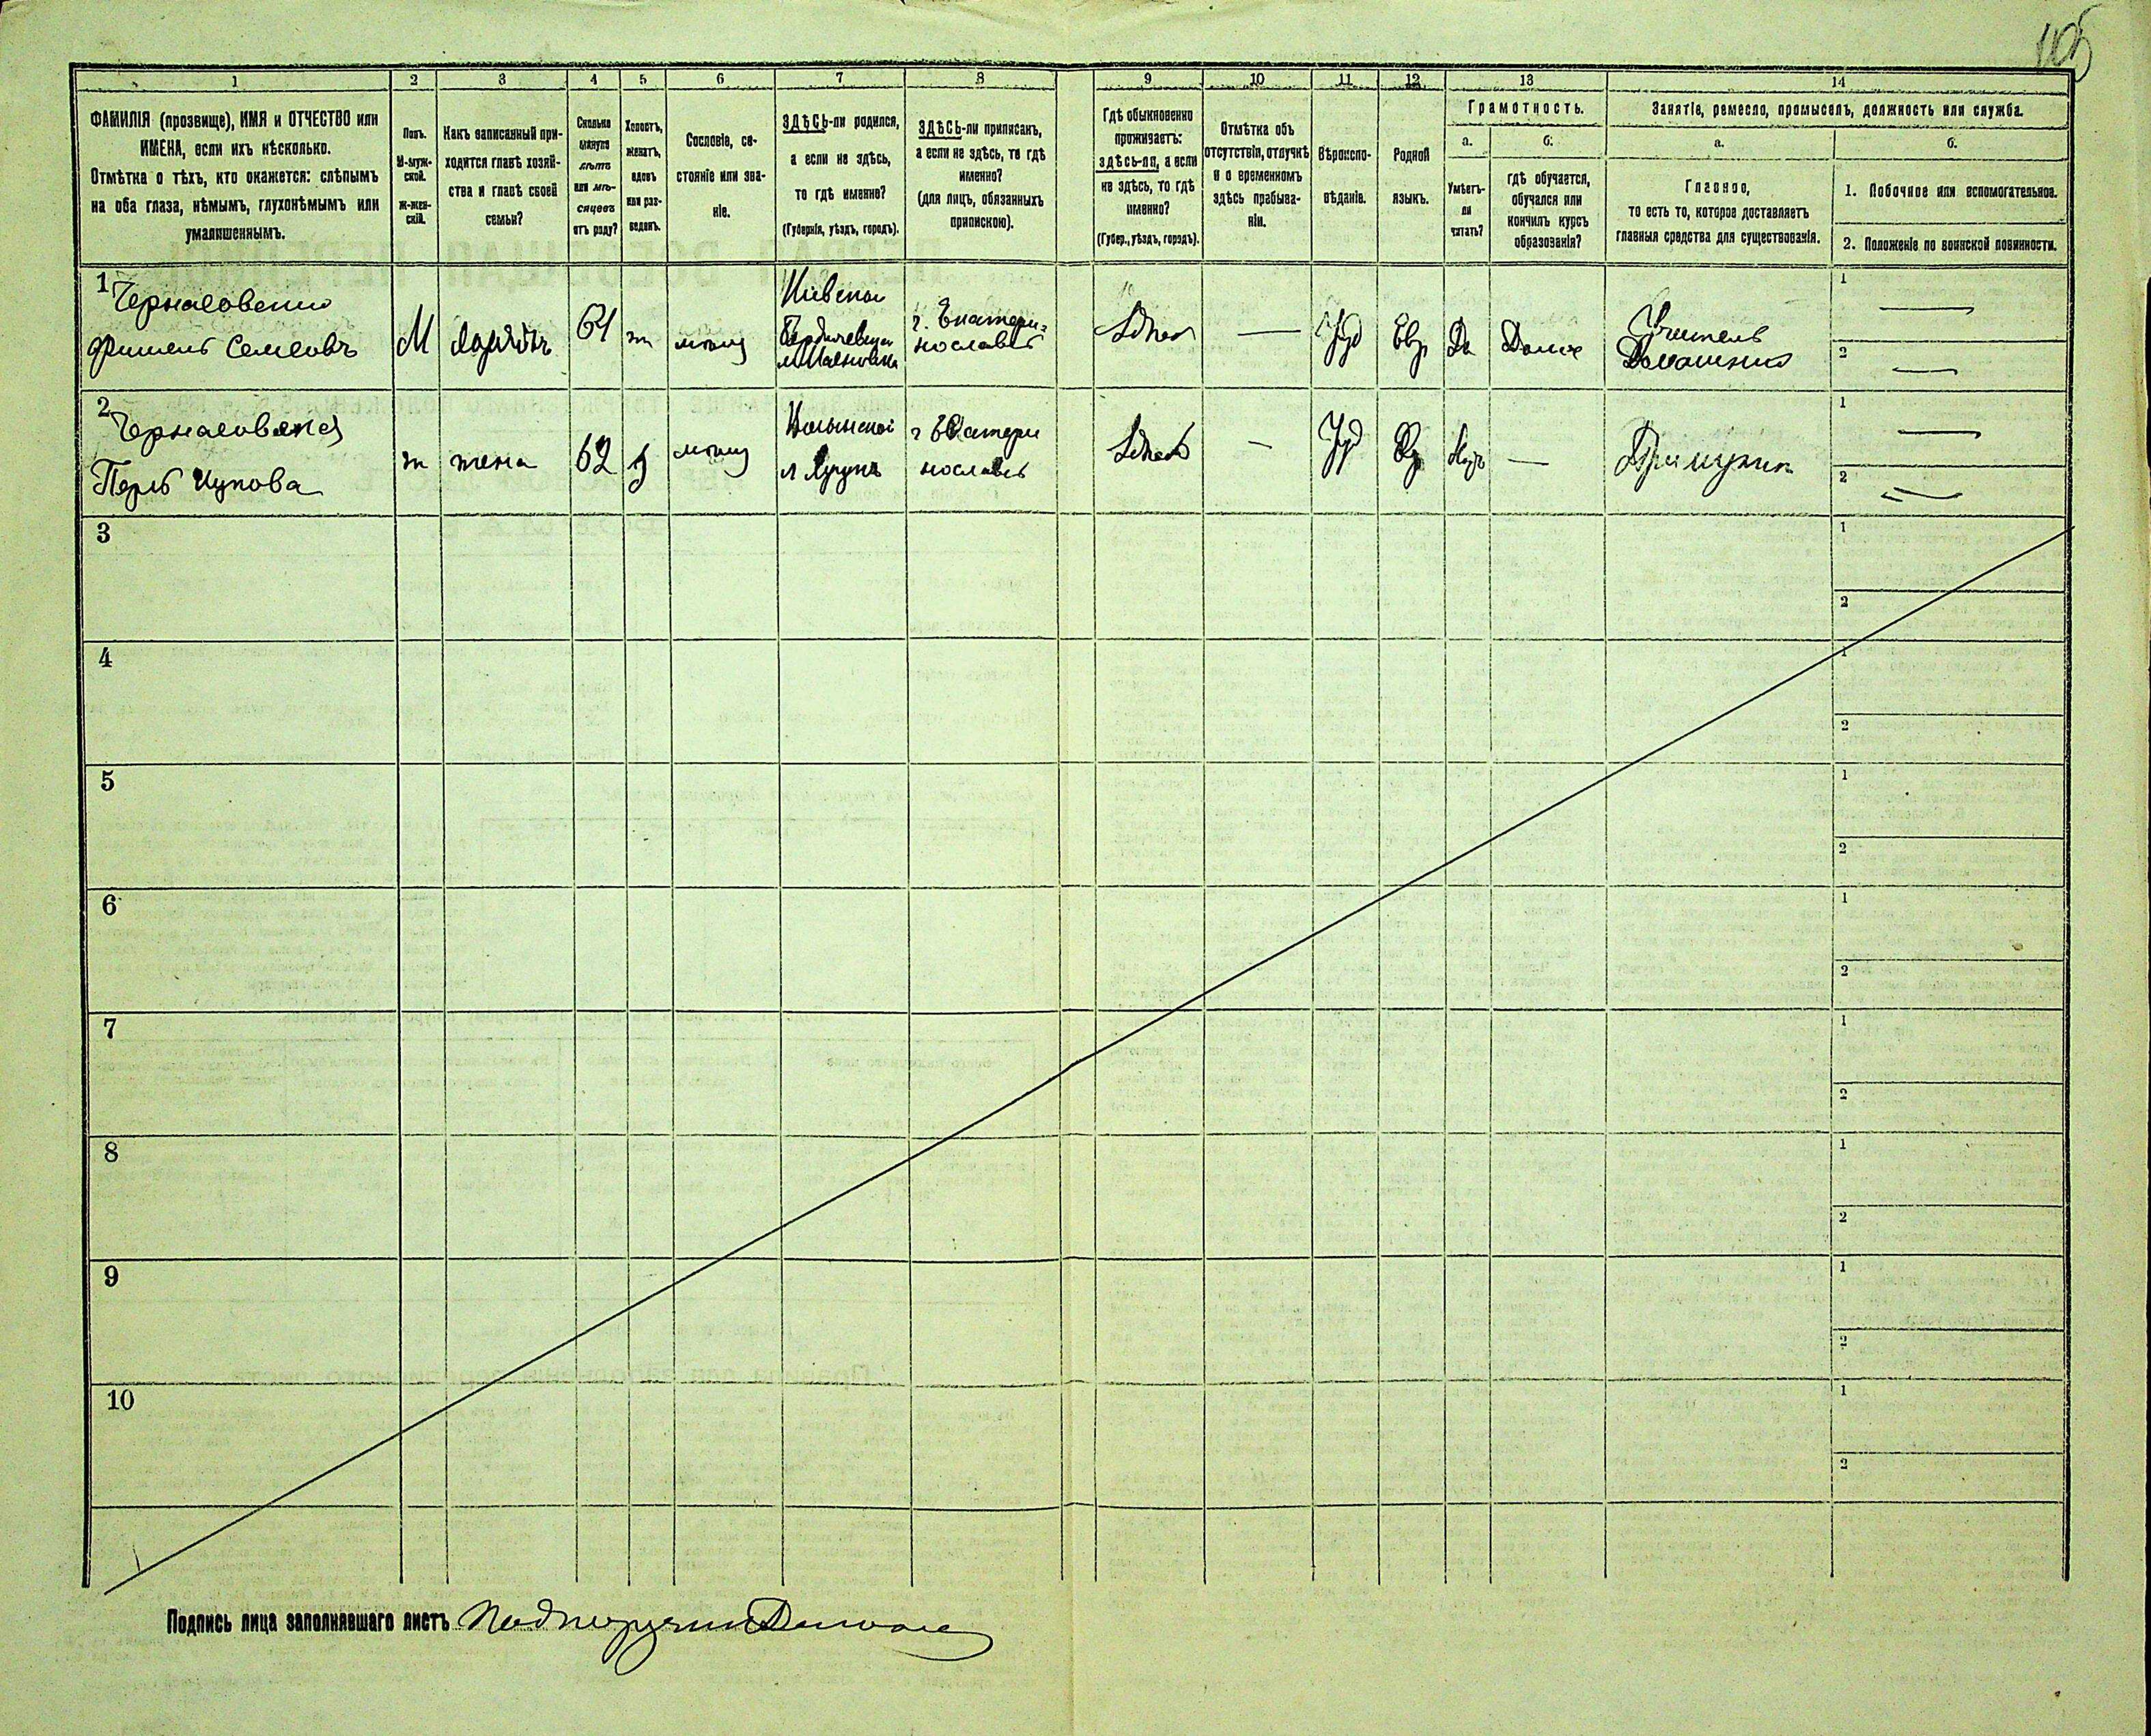 105
1 2 3 4 5 6 7 8 9 10 11 12 13 14
ФАМИЛІЯ (прозвище), ИМЯ и ОТЧЕСТВО или
ИМЕНА, если ихъ нѣсколько.
Отмѣтка о тѣхъ, кто окажется: слѣпымъ
на оба глаза, нѣмымъ, глухонѣмымъ или
умалишеннымъ.
Полъ.
М-муж-
ской.
Ж-жен-
скій.
Какъ записанный при-
ходится главѣ хозяй-
ства и главѣ своей
семьи?
Сколько
минуло
лѣтъ
или мѣ-
сяцевъ
отъ роду?
Холостъ,
женатъ,
вдовъ
или раз-
веденъ.
Сословіе, со-
стояніе или зва-
ніе.
ЗДѢСЬ-ли родился,
а если не здѣсь,
то гдѣ именно?
(Губернія, уѣздъ, городъ).
ЗДѢСЬ-ли приписанъ,
а если не здѣсь, то гдѣ
именно?
(для лицъ, обязанныхъ
припискою).
Гдѣ обыкновенно
проживаетъ:
здѣсь-ли, а если
не здѣсь, то гдѣ
именно?
(Губер., уѣздъ, городъ).
Отмѣтка объ
отсутствіи, отлучкѣ
и о временномъ
здѣсь пребыва-
ніи.
Вѣроиспо-
вѣданіе.
Родной
языкъ.
Грамотность.
а.
Умѣетъ-
ли
читать?
б.
гдѣ обучается,
обучался или
кончилъ курсъ
образованія?
Занятіе, ремесло, промыселъ, должность или служба.
а.
Главное,
то есть то, которое доставляетъ
главныя средства для существованія.
б.
1. Побочное или вспомогательное.
2. Положеніе по воинской повинности.
1
Фишель
М
ж
г. Екатери-
нославѣ
Іуд
Евр
Да
Дома
Учитель
1
2
2
Перль
ж
жена
62
Волынской
г Екатери
нославѣ
Іуд
1
2
3
1
2
4
1
2
5
1
2
6
1
2
7
1
2
8
1
2
9
1
2
10
1
2
Подпись лица заполнявшаго листъ